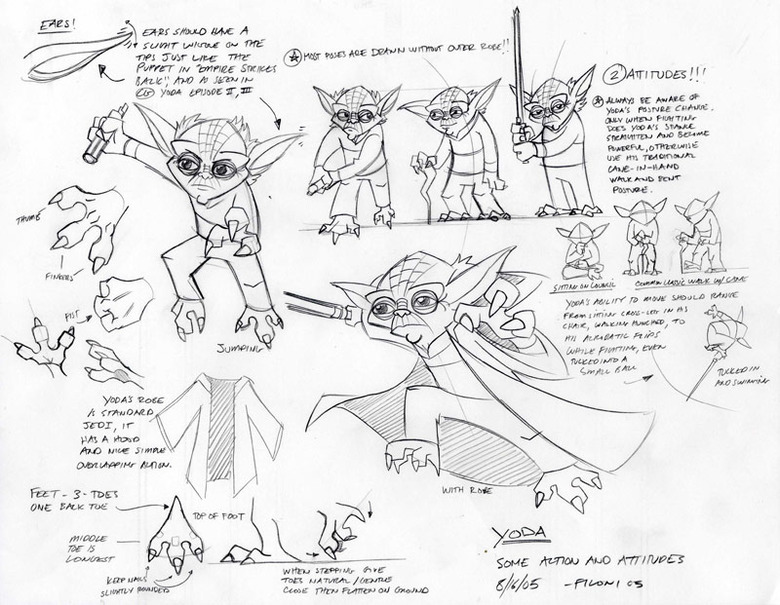 EARS!
EARS SHOULD HAVE A
SLIGHT WRINKLE ON THE
TIPS JUST LIKE THE
PUPPET IN "EMPIRE STRIKES
BACK", AND AS SEEN IN
CG YODA EPISODE II, III
MOST POSES ARE DRAWN WITHOUT OUTER ROBE!!
2 ATTITUDES!!!
ALWAYS BE AWARE OF
YODA'S POSTURE CHANGE.
ONLY WHEN FIGHTING
DOES YODA'S STANCE
STRAIGHTEN AND BECOME
POWERFUL, OTHERWISE
USE HIS TRADITIONAL
CANE-IN-HAND
WALK AND BENT
POSTURE.
THUMB
FINGERS
FIST
JUMPING
SITTING ON COUNCIL
COMMON CLASSIC WALK W/ CANE
YODA'S ABILITY TO MOVE SHOULD RANGE
FROM SITTING CROSS-LEG IN HIS
CHAIR, WALKING HUNCHED, TO
HIS ACROBATIC FLIPS
WHILE FIGHTING, EVEN
TUCKED INTO A
SMALL BALL
TUCKED IN
AND SWINGING
YODA'S ROBE
IS STANDARD
JEDI, IT
HAS A HOOD
AND NICE SIMPLE
OVERLAPPING ACTION.
WITH ROBE
FEET - 3 - TOES
ONE BACK TOE
TOP OF FOOT
MIDDLE
TOE IS
LONGEST
KEEP NAILS
SLIGHTLY ROUNDED
WHEN STEPPING GIVE
TOES NATURAL/GENTLE
CLOSE THEN FLATTEN ON GROUND
YODA
SOME ACTION AND ATTITUDES
8/16/05 -FILONI 05